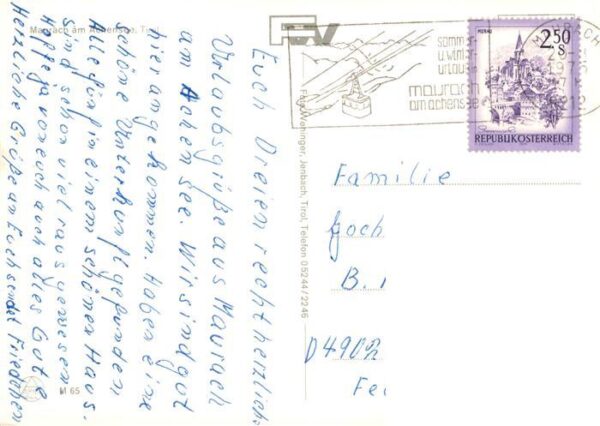 Maurach am Achensee, Tirol
Euch Dreien recht herzlich.
Urlaubsgrüße aus Maurach
am Achensee. Wir sind gut
hier angekommen. Haben eine
schöne Unterkunft gefunden
Alle fünf in einem schönen Haus.
Sind schon viel raus gewesen
Hoffe von euch auch alles Gute
Herzliche Grüße an Euch sendet Friedchen
M 65
Foto Wöhinger, Jenbach, Tirol, Telefon 05244/2246
sommer-
u.winter-
urlaub
maurach
am achensee
6212
2.50
S
MURAU
REPUBLIK ÖSTERREICH
Familie
Joch
B.
D4902